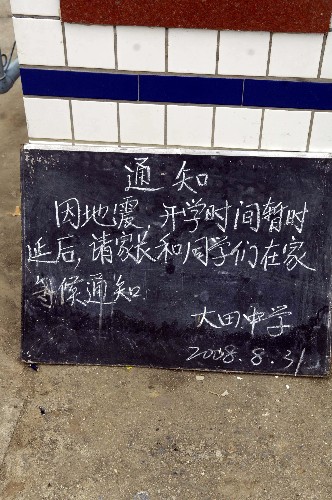 通知
因地震,开学时间暂时
延后,请家长和同学们在家
等候通知.
大田中学
2008.8.31